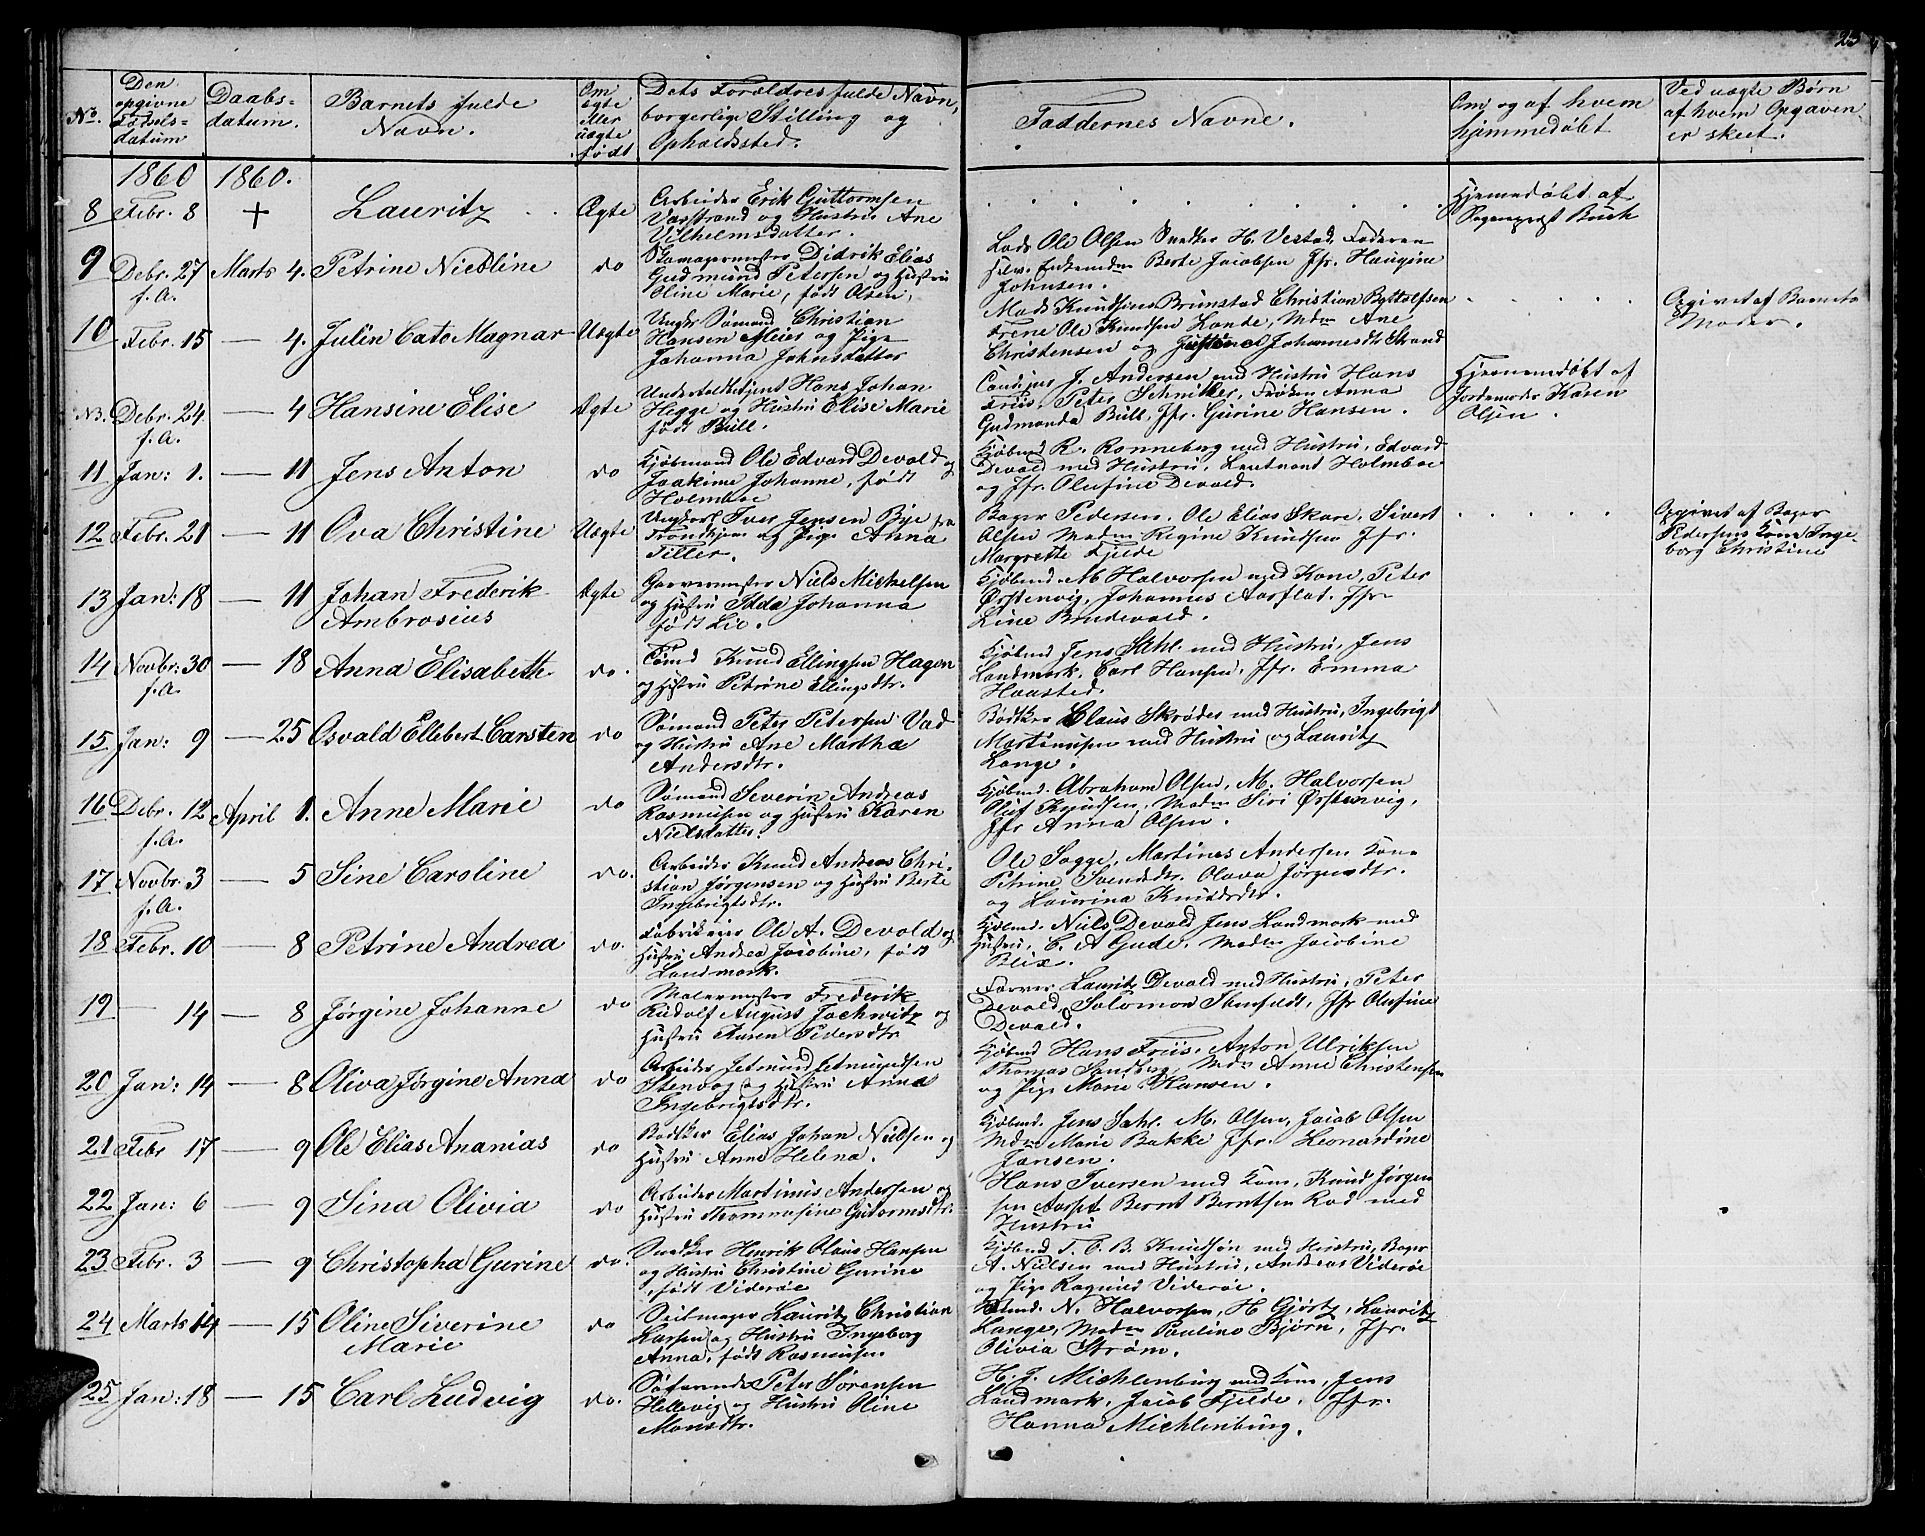 23
No.
Den opgivne Fødsels-datum
Daabs-datum.
Barnets fulde Navn.
Om ægte eller uægte født
Dets Forældres fulde Navn, borgerlige Stilling og Opholdssted.
Faddernes Navne.
Om og af hvem hjemmedøbt
Ved uægte Børn af hvem Opgaven er skeet.
1860 1860.
8 Febr. 8 + Lauritz Ægte
Arbeider Erik Guttormsen
og Hustru Ane
Vilhelmsdatter.
Hjemmedøbt af
Buch
9 Debr. 27 f.A. Marts 4. Petrine Nicoline do
Didrik Elias
Gudmund Petersen og Hustru
Oline Marie, født Olsen.
Lods Ole Olsen Snedker H. Vestad, Faderen
selv. Berte Jacobsen Jfr. Haugine
Johnsen.
10 Febr. 15 — 4. Julin Cato Magnar Uægte
Sømand Christian
Hansen og Pige
Johanna Johnsdatter
Mads Knudsen Brunstad Christian
Ole Knudsen Lande, Mdm Ane
Christensen og Johannesdtr Strand
Opgivet af Barnets
Moder.
N3. Debr. 24 f.A. — 4 Hansine Elise Ægte
Hans Johan
Higge og Hustru Elise Marie
født Bull.
J. Andersen med Hustru Hans
Friis, Peter Schnitler, Frøken Anna
Gudmanda Bull, Jfr. Gurine Hansen.
Hjemmedøbt af
Jordemoder Karen
Olsen.
11 Jan: 1. — 11 Jens Anton do
Kjøbmand Ole Edvard Devold og
Joakime Johanne, født
Holmboe
Kjøbmd R. Ronneberg med Hustru, Edvard
Devold med Hustru, Leutnant Holmboe
og Jfr. Olufine Devold.
12 Febr. 21 — 11 Ova Christine Uægte
Ungkarl Iver Jensen Bye fra
Trondhjem og Pige Anna
Tiller.
Bager Pedersen, Ole Elias Skare, Sivert
Olsen Madm Regine Knudsen Jfr.
Margrethe Fjelde
Opgivet af Bager
Pedersens Kone Inge-
borg Christine
13 Jan: 18 — 11 Johan Frederik
Ambrosius Ægte
Garvermester Niels Michelsen
og Hustru Ilda Johanna
født Lie.
Kjøbmd. M. Halvorsen med Kone, Peter
Ørstenvig, Johannes Aarflot. Jfr
Line Brudevold.
14 Novbr. 30 f.A. — 18 Anna Elisabeth do.
Knud Ellingsen Hagen
og Hustru Petrine Ellingsdtr.
Kjøbmd Jens Dahl med Hustru, Jens
Landmark, Carl Hansen, Jfr. Emma
Haasted.
15 Jan: 9 — 25 Osvald Ellebert Carsten do
Sømand Peter Petersen Vad
og Hustru Ane Martha
Andersdtr.
Bødker Claus Skrøder med Hustru, Ingebrigt
Martinusen med Hustru og Lauritz
Lange.
16 Debr. 12 f.A. April 1. Anne Marie do
Sømand Severin Andreas
Rasmusen og Hustru Karen
Nielsdatter.
Kjøbmd. Abraham Olsen, M. Halvorsen
Oluf Knudsen, Madm Siri Ørstenvig,
Jfr Anna Olsen.
17 Novbr. 3 f.A. — 5 Sine Caroline do.
Arbeider Knud Andreas Chri-
stian Jørgensen og Hustru Berte
Ingebrigtsdtr.
Ole Sogge, Martines Andersen Kone
Petrine Svendsdtr. Olava Jørgensdtr.
og Laurina Knudsdtr.
18 Febr. 10 — 8 Petrine Andrea do.
Fabrikeier Ole A. Devold og
Hustru Andrea Jacobine, født
Landmark.
Kjøbmd. Niels Devold Jens Landmark med
Hustru, C. A Gude, Madm Jacobine
Blix.
19 — 14 — 8 Jørgine Johanne do
Malermester Frederik
Rudolf August Jochwitz og
Hustru Karen Pedersdtr
Farver Lauritz Devold med Hustru, Peter
Devold, Solomon Stenfeldt, Jfr Olufine
Devold.
20 Jan: 14 — 8 Oliva Jørgine Anna do
Arbeider Jetmund Jetmundsen
Stenvog og Hustru Anna
Ingebrigtsdtr.
Kjøbmd Hans Friis, Anton Ulriksen
Thomas Sundberg, Mdm Anne Christensen
og Pige Marie Hansen.
21 Febr 17 — 9 Ole Elias Ananias do
Bødker Elias Johan Nielsen og
Hustru Anne Helena.
Kjøbmd. Jens Dahl. M. Olsen, Jacob Olsen
Mdm Marie Bakke Jfr. Leonardine
Jansen.
22 Jan: 6 — 9 Sina Olivia do
Arbeider Martinus Andersen og
Hustru Thommasine Gutormsdtr.
Hans Iversen med Kone, Knud Jørgen
sen Aasset Bernt Berntsen Rod med
Hustru
23 Febr. 3 — 9 Christopha Gurine do.
Snedker Henrik Olaus Hansen
og Hustru Christine Gurine
født Viderøe
Kjøbmd T. C. B. Knudson med Hustru, Bager
A. Nielsen med Hustru, Andreas Viderøe
og Pige Ragnild Viderøe.
24 Marts 14 — 15 Oline Siverine
Marie do
Seilmager Lauritz Christian
Larsen og Hustru Ingeborg
Anna, født Rasmusen
N. Halvorsen, H Gjørtz, Lauritz
Lange, Madm Pauline Bjørn, Jfr.
Olivia Strøm.
25 Jan: 18 — 15 Carl Ludvig do.
Peter Sørensen
Hellevig og Hustru Oline
Monsdtr.
H. J. Michlenburg med Kone, Jens
Landmark, Jacob Fjelde, Jfr.
Hanna Michlenburg.